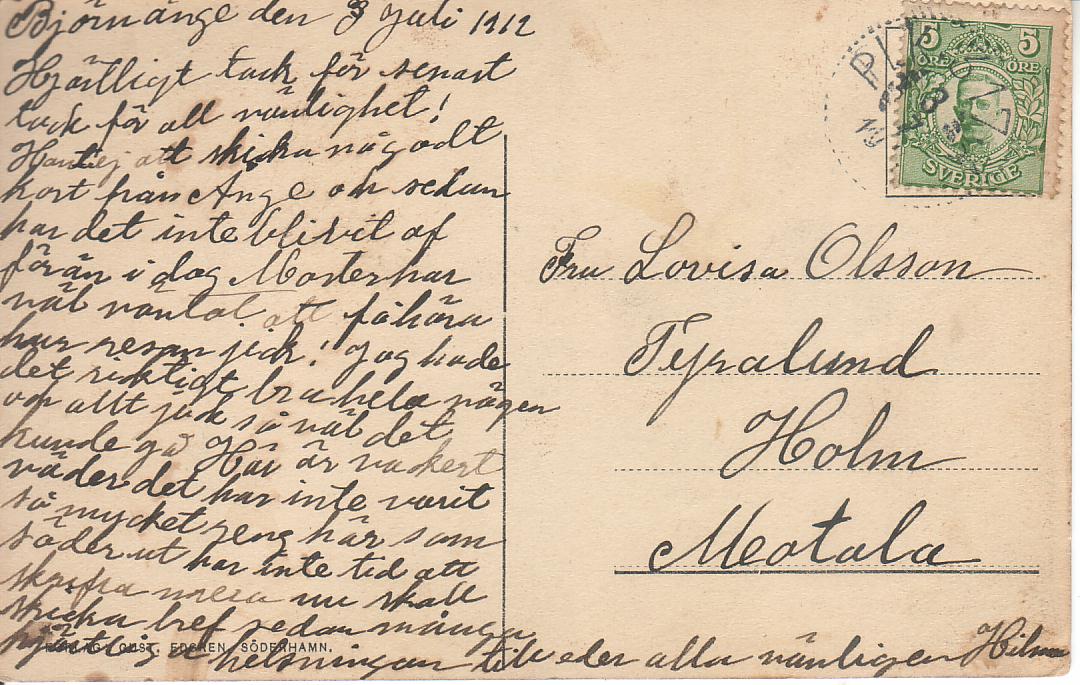 Björnänge den 3 Juli 1912
Hjärtligt tack för senast
tack för all vänlighet!
Hant ej att skicka någodt
kort från Ånge ock sedan
har det inte blifvit af
förän i dag Moster har
väl väntat att få höra
hur resan jick! Jag hade
det riktigt bra hela vägen
och allt jick så väl det
kunde gå Här är vackert
väder det har inte varit
så mycket reng här som
söder ut har inte tid att
skrifva mera nu skall
skicka bref sedan många
hjärtliga helsningar till eder alla vänligen Hilma
FÖRLAG: GUST. EDGREN, SÖDERHAMN.
5 5
ÖRE ÖRE
SVERIGE
Fru Lovisa Olsson
Fyralund
Holm
Motala